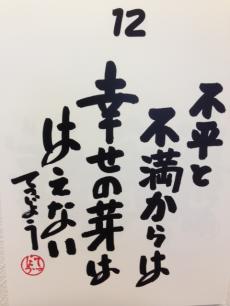 12
不平と
不満からは
幸せの芽は
はえない
てつじょう